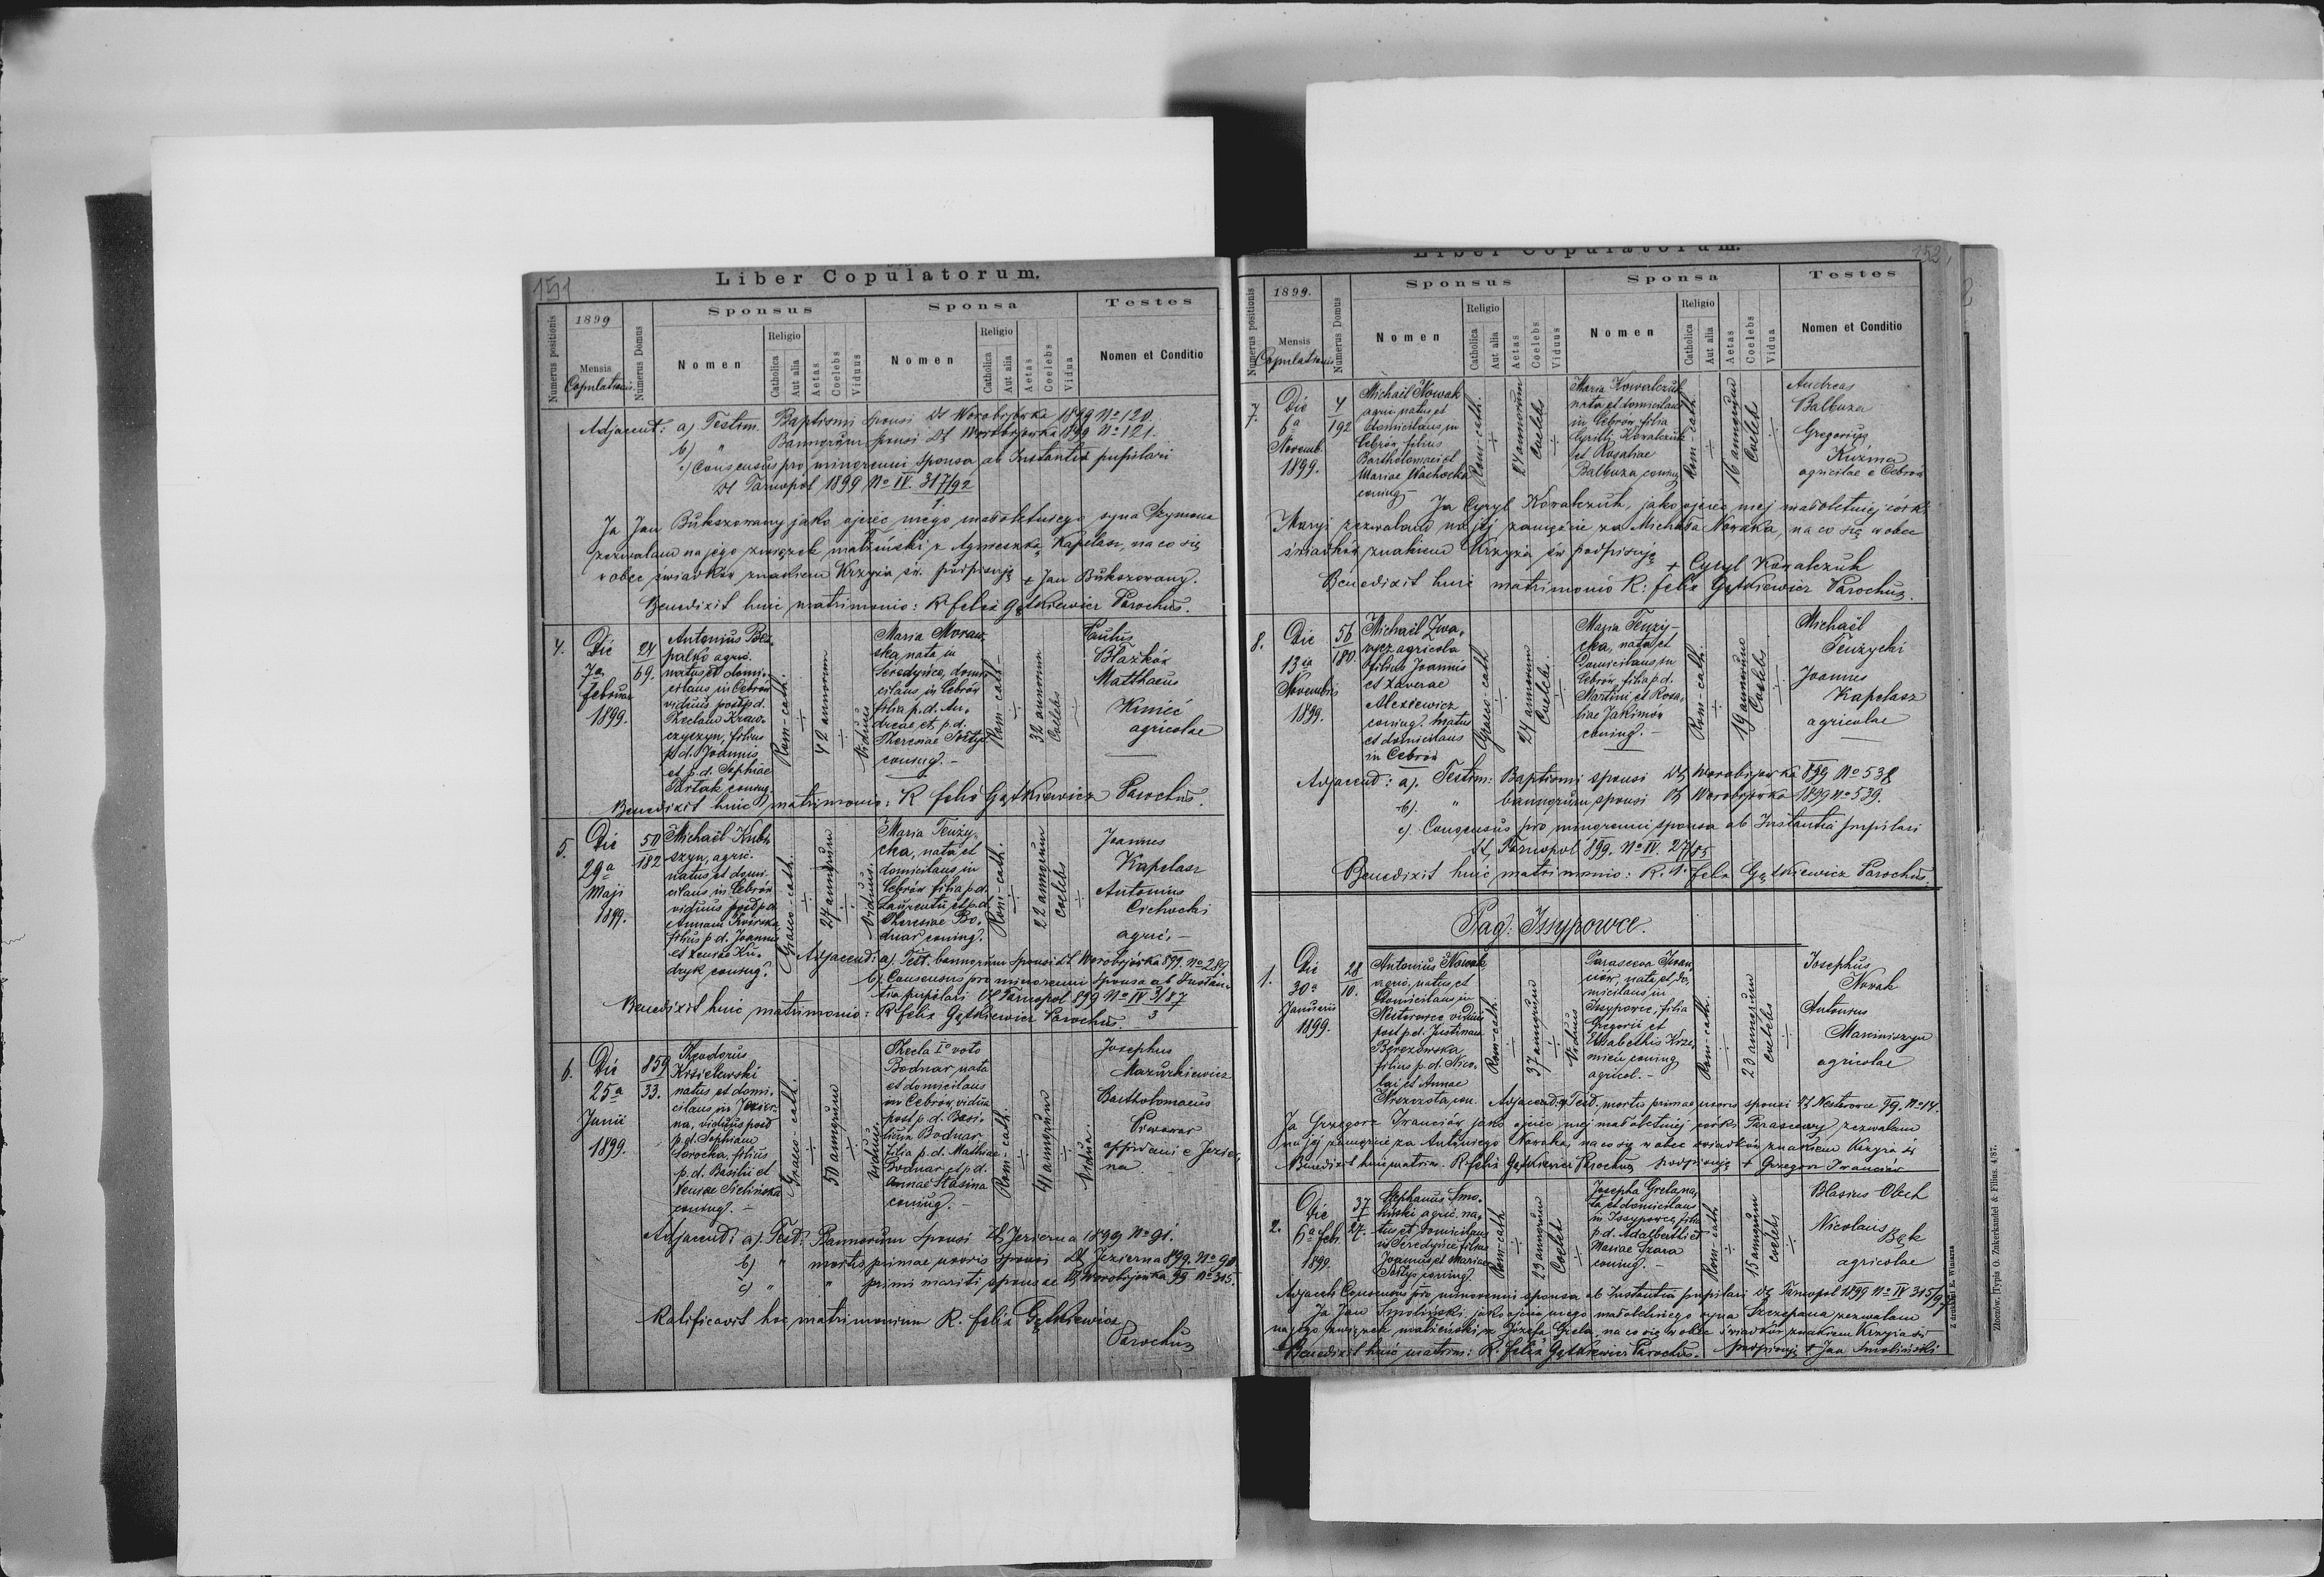 151
Liber Copulatorum.
Numerus positionis
1899
Mensis
Copulationis
Numerus Domus
Sponsus
Nomen
Religio
Catholica
Aut alia
Aetas
Coelebs
Viduus
Sponsa
Nomen
Religio
Catholica
Aut alia
Aetas
Coelebs
Vidua
Testes
Nomen et Conditio
Adjacent: a) Testim. Baptismi sponsi Dt Worobijówka 1899 No 120.
b) " Bannorum sponsi Dt Worobijówka 1899 No 121.
c) Consensus pro minorenni sponsa ab Instantia pupilari
Dt Tarnopol 1899 No IV. 317/92
1
Ja Jan Bukszowany jako ojciec mego małoletniego syna Szymona
zezwalam na jego związek małżeński z Agnieszką Kapelasz, na co się
wobec świadków znakiem Krzyża św. podpisuję + Jan Bukszowany.
Benedixit huic matrimonio: R felix Gątkiewicz Parochus.
4.
Die
7a
februar
1899.
24
69.
Antonius Bez-
palko agric.
natus et domi-
cilans in Cebrów
viduus post p.d.
Theclam Kraw-
czyszyn, filius
p.d. Joannis
et p.d. Sophiae
Bartak coniug.
Rom-cath.
42 annorum
Viduus
Maria Moraw-
ska, nata in
Seredyńce, domi-
cilans in Cebrów
filia p.d. An-
dreae et p.d.
Theresiae Sołtys
coniug. -
Rom-cath-
32 annorum
Coelebs
Paulus
Błażków
Matthaeus
Kmieć
agricolae
Benedixit huic matrimonio: R felix Gątkiewicz Parochus.
5.
Die
29a
Maji
1899.
50
182
Michaël Kubi-
szyn, agric.
natus et domi-
cilans in Cebrów
viduus post p.d.
Annam
filius p.d. Joannis
et Xeniae Ku-
dryk coniug.
Graeco-cath.
27 annorum
Viduus
Maria Tenży-
cka, nata et
domicilans in
Cebrów filia p.d.
Laurentii et p.d.
Theresiae Bo-
dnar coniug.
Rom-cath.
22 annorum
Coelebs
Joannes
Kapelasz
Antonius
Cichocki
agric. -
Adjacend: a) Test. bannorum sponsi dt Worobijówka 899 No 289.
b) Consensus pro minorenni sponsa ab Instan-
tia pupilari Dt Tarnopol 899 No IV 3/87
3
Benedixit huic matrimonio: R felix Gątkiewicz Parochus.
6.
Die
25a
Junii
1899.
859
33.
Theodorus
Kisielewski
natus et domi-
cilans in Jezier-
na, viduus post
p.d. Sophiam
Soroka, filius
p.d. Basilii et
Xeniae Sielińska
coniug. -
Graeco-cath.
50 annorum
Viduus.
Thecla Io voto
Bodnar nata
et domicilans
in Cebrów, vidua
post p.d. Basi-
lium Bodnar
filia p.d. Mathiae
Bodnar et p.d.
Annae Stasina
coniug. -
Rom-cath
41 annorum
Vidua.
Josephus
Mazurkiewicz
Bartholomaeus
Piwowar
oppidani e Jezier-
na
Adjacend: a) Test. Bannorum sponsi Dt Jezierna 1899 No 91.
b) " mortis primae uxoris sponsi Dt Jezierna 899. No 90.
c) " " primi mariti sponsae Dt Worobijówka 99 No 315.
Ratificavit hoc matrimonium R. felix Gątkiewicz
Parochus
152
Liber Copulatorum.
Numerus positionis
1899.
Mensis
Copulationis
Numerus Domus
Sponsus
Nomen
Religio
Catholica
Aut alia
Aetas
Coelebs
Viduus
Sponsa
Nomen
Religio
Catholica
Aut alia
Aetas
Coelebs
Vidua
Testes
Nomen et Conditio
7.
Die
6a
Novemb.
1899.
4
192
Michaël Nowak
agric. natus et
domicilans in
Cebrów filius
Bartholomaei et
Mariae Wachocka
coniug -
Rom-cath.
24 annorum
Coelebs
Maria Kowalczuk
nata et domicilans
in Cebrów, filia
Cyrilli Kowalczuk
et Rosaliae
Balbuza coniug
Rom-cath.
16 annorum
Coelebs
Andreas
Balbuza
Gregorius
Kuzma
agricolae e Cebrów
Ja Cyryl Kowalczuk, jako ojciec mej małoletniej córki
Maryi zezwalam na jej zamęźcie za Michała Nowaka, na co się wobec
świadków znakiem Krzyża św podpisuję + Cyryl Kowalczuk
Benedixit huic matrimonio R: felix Gątkiewicz Parochus.
8.
Die
13ia
Novembris
1899.
56
180.
Michaël Zwa-
rycz agricola
filius Joannis
et Xaverae
Alexiewicz
coniug. natus
et domicilans
in Cebrów
Graeco-cath
24 annorum
Coelebs.
Maria Tenży-
cka, nata et
Domicilans in
Cebrów, filia p.d.
Martini et Rosa-
liae Jakimów
coniug. -
Rom-cath.
19 annorum
Coelebs.
Michaël
Tenżycki
Joannes
Kapelasz
agricolae
Adjacend: a). Testim: Baptismi sponsi Dt Worobijówka 899 No 538
b). " bannorum sponsi Dt Worobijówka 1899 No 539.
c). Consensus pro minorenni sponsa ab Instantia pupilari
dt, Tarnopol 899. No IV. 27/85
1.
Benedixit huic matrimonio: R. felix Gątkiewicz Parochus.
Pag: Issypowce.
1.
Die
30a
Januarii
1899.
28
10.
Antonius Nowak
agric, natus et
Domicilans in
Nesterowce viduus
post p.d. Justinam
Berezowska
filius p.d. Nico-
lai et Annae
Rom-cath.
37 annorum
Viduus
Parascewa Iwan-
ciów, nata et do-
micilans in
Issypowce, filia
Gregorii et
Elisabethis Krze-
mień coniug
agricol. -
Rom-cath.
23 annorum
coelebs
Josephus
Nowak
Antonius
agricolae
Adjacend: Test. mortis primae uxoris sponsi Dt Nesterowce 99. No 14.
Ja Grzegorz Iwanciów jako ojciec mej małoletniej córki Parascewy zezwalam
na jej zamęźcie za Antoniego Nowaka, na co się wobec świadków znakiem Krzyża św
Benedixit huic matrim. R felix Gątkiewicz Parochus podpisuję + Grzegorz Iwanciów
2.
Die
6a feb.
1899.
37
27.
Stephanus Smo-
liński agric. na-
tus et Domicilans
in Seredyńce filius
Joannis et Mariae
Sołtys coniug.
Rom-cath
23 annorum
Coelebs
Josepha Grela na-
ta et domicilans
in Issypowce, filia
p.d. Adalberti et
Mariae Szara
coniug. -
Rom-cath
15 annorum
coelebs
Blasius Olech
Nicolaus
Bąk
agricolae
Adjacets Consensus pro minorenni sponsa ab Instantia pupilari Dt Tarnopol 1899 No IV 315/92
Ja Jan Smoliński jako ojciec mego małoletniego syna Szczepana, zezwalam
na jego związek małżeński z Józefą Grela, na co się wobec świadków znakiem Krzyża św
Benedixit huic matrim: R felix Gątkiewicz Parochus. podpisuję + Jan Smoliński
Z drukarni E. Winiarza
Złoczów. [Typis O. Zukerkandel & Filius. 4/87.